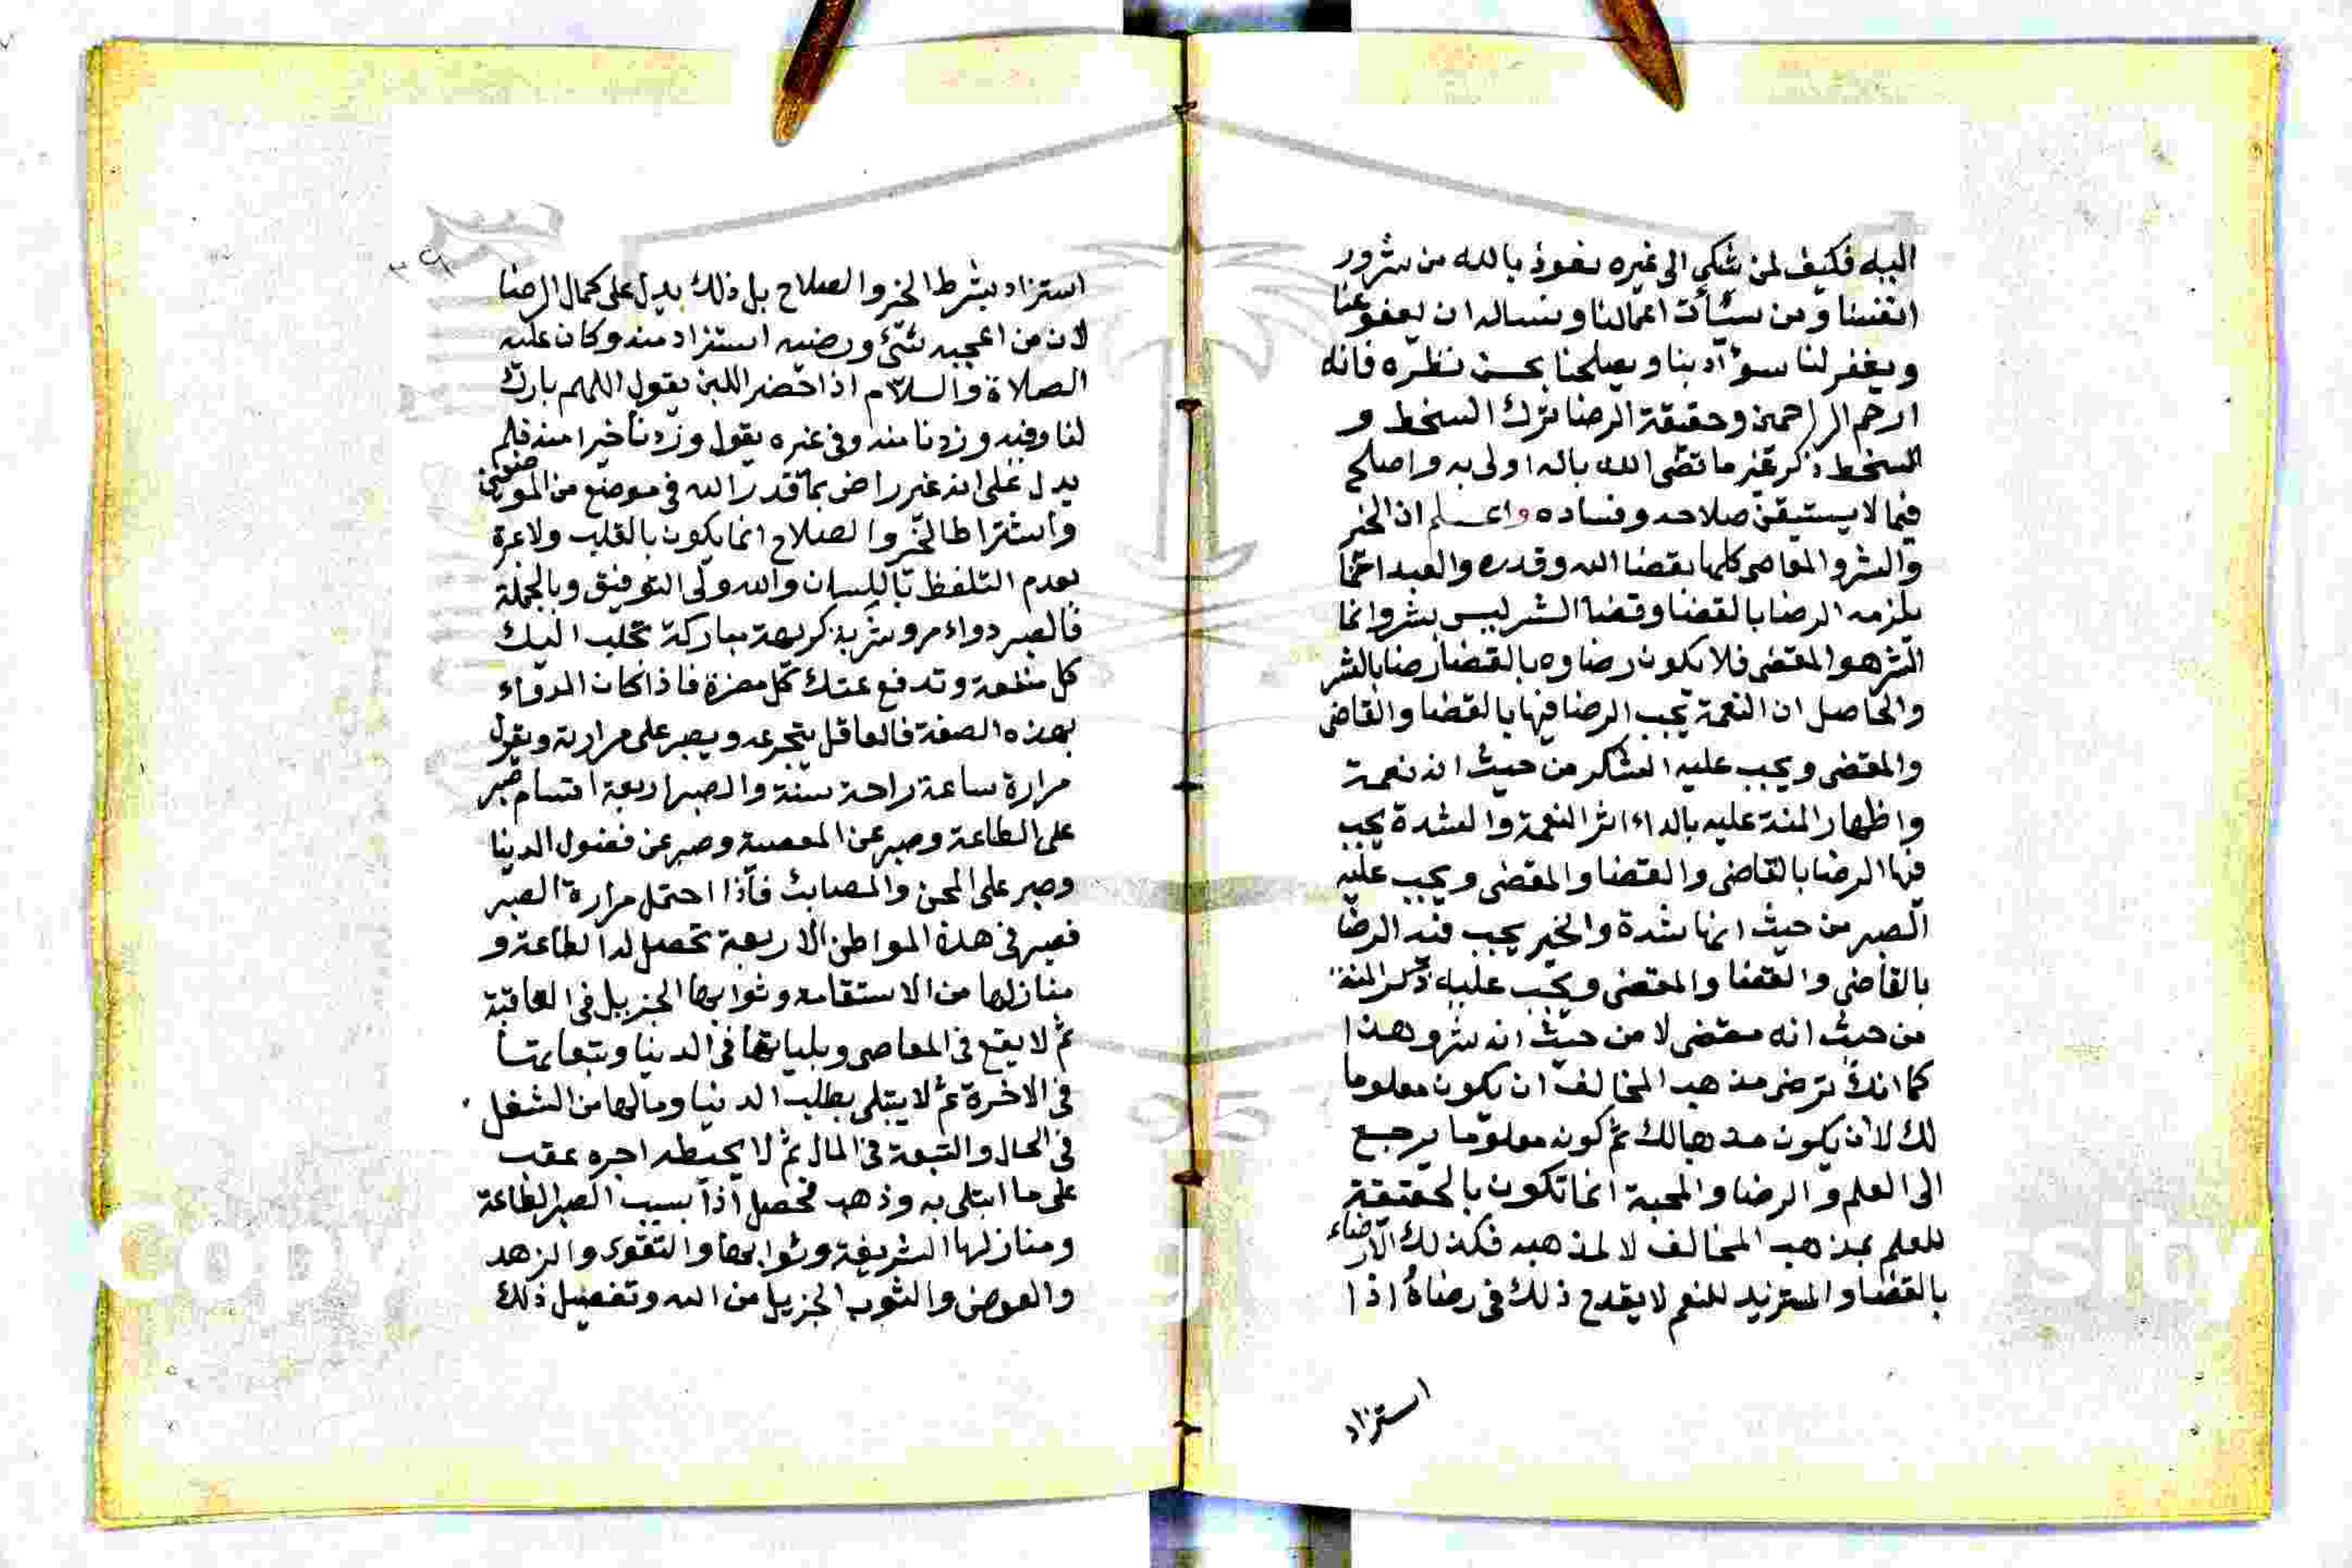 اليه فكيف لمن يشكي الى غيره نعوذ بالله من شرور
انفسنا ومن سيئات اعمالنا ونساله ان يعفو عنا
ويغفر لنا سوء آدبنا ويصلحنا بحسن نظره فانه
ارحم الراحمين وحقيقة الرضا ترك السخط و
السخط ذكر غير ما قضى الله بانه اولى به واصلح
فيما لا يستيقن صلاحه وفساده واعلم ان الخير
والشر والمعاصي كلها بقضا الله وقدره والعبد انما
يلزمه الرضا بالقضا وقضا الشر ليس بشر وانما
الشر هو المقضى فلا يكون رضاوه بالقضا رضا بالشر
والحاصل ان النعمة يجب الرضا فيها بالقضا والقاضى
والمقضى ويجب عليه الشكر من حيث انه نعمة
واظهار المنة عليه بالداء اثر النعمة والشدة يجب
فيها الرضا بالقاضى والقضا والمقضى ويجب عليه
الصبر من حيث انها شدة والخير يجب فيه الرضا
بالقاضى والقضا والمقضى ويجب عليه ذكر المنة
من حيث انه مقضى لا من حيث انه شر وهذا
كما انك ترضى مذهب المخالف ان يكون معلوما
لك لا ان يكون مذهبا لك ثم كونه معلوما يرجع
الى العلم والرضا والمحبة انما تكون بالحقيقة
للعلم بمذهب المخالف لا لمذهبه فكذلك الارضاء
بالقضا والمستزيد للنعم لا يقدح ذلك فى رضاه اذا
استزاد
استزاد بشرط الخير والصلاح بل ذلك يدل على كمال الرضا
لان من اعجبه شئ ورضيه استزاد منه وكان عليه
الصلاة والسلام اذا حضر اللبن يقول اللهم بارك
لنا وفيه وزدنا منه وفى غيره يقول وزدنا خيرا منه فلم
يدل على انه غير راض بما قدر الله فى موضع من الموضعين
واشتراط الخير والصلاح انما يكون بالقلب ولا عبرة
بعدم التلفظ باللسان والله ولى التوفيق وبالجملة
فالصبر دواء مر وشربة كريهة مباركة تجلب اليك
كل منفعة وتدفع عنك كل مضرة فاذا كان الدواء
بهذه الصفة فالعاقل يتجرعه ويصبر على مرارته ويقول
مرارة ساعة راحة سنة والصبر اربعة اقسام صبر
على الطاعة وصبر عن المعصية وصبر عن فضول الدنيا
وصبر على المحن والمصائب فاذا احتمل مرارة الصبر
فصبر فى هذه المواطن الاربعة تحصل له الطاعة و
منازلها من الاستقامة وثوابها الجزيل فى العاقبة
ثم لا يقع فى المعاصى وبلياتها فى الدنيا وتبعاتها
فى الاخرة ثم لا يبتلى بطلب الدنيا ومالها من الشغل
فى الحال والتبعة فى المال ثم لا يحبط اجره عقب
على ما ابتلى به وذهب فحصل اذا بسبب الصبر الطاعة
ومنازلها الشريفة وثوابها والتقوى والزهد
والعوض والثوب الجزيل من الله وتفصيل ذلك